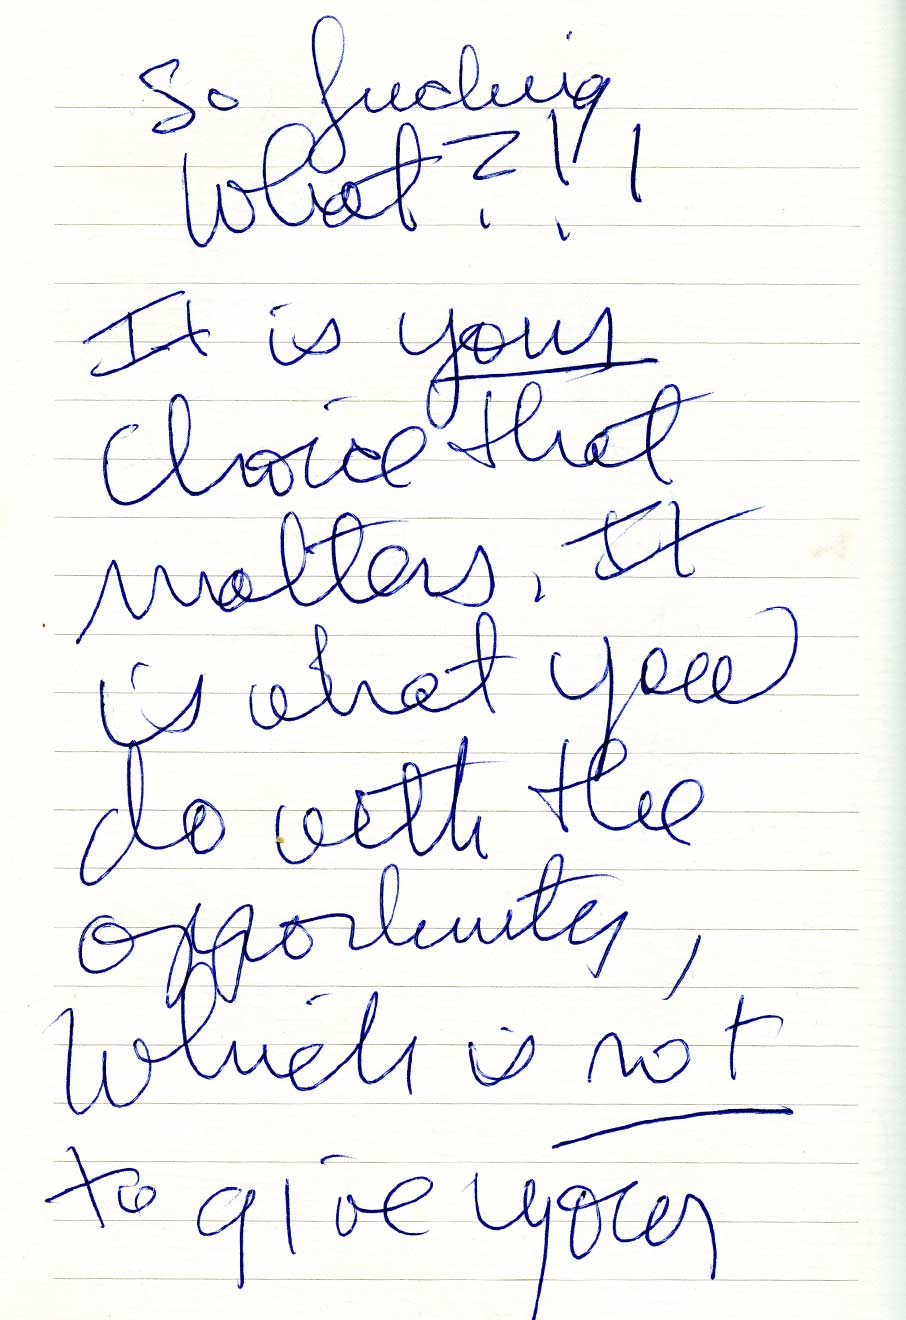 So fucking
What?!!
It is your
choice that
matters. It
is what you
do with the
opportunity,
Which is not
to give your